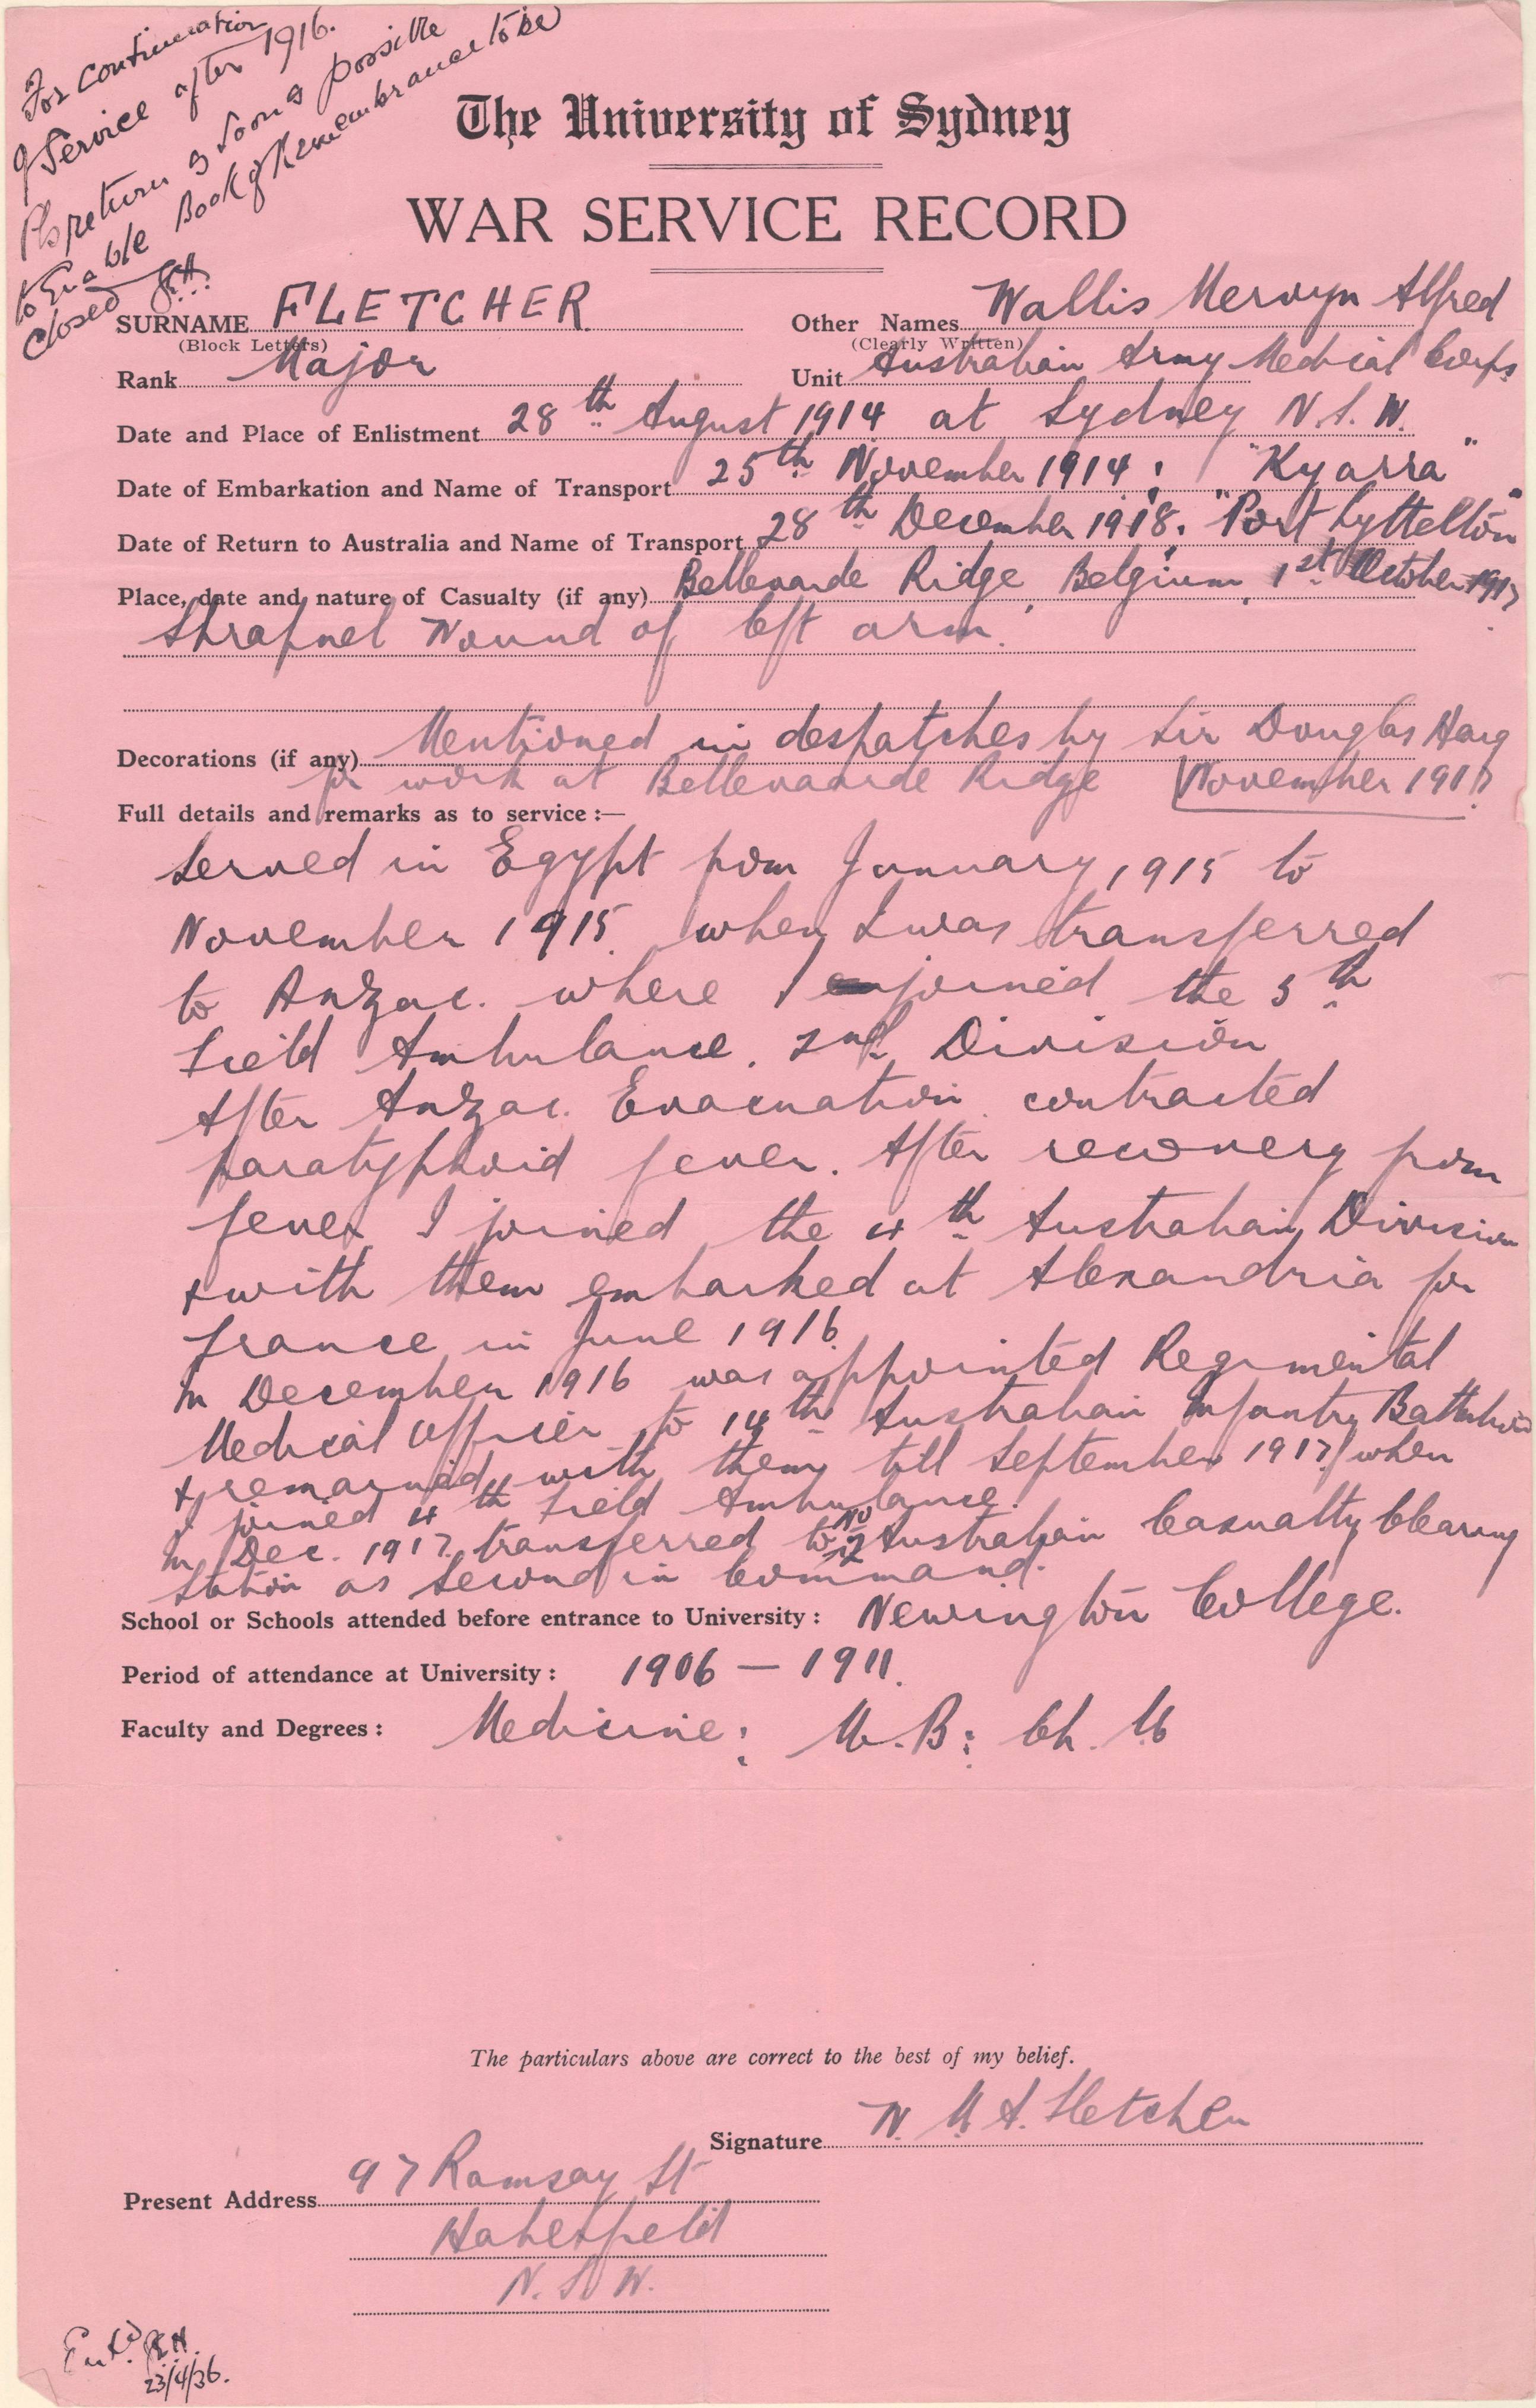 For continuation
of Service after 1916.
Pls return as soon as possible
to Enable Book of Remembrance to be
closed
The University of Sydney
WAR SERVICE RECORD
SURNAME FLETCHER Other Names Wallis Mervyn Alfred
(Block Letters) (Clearly Written)
Rank Major Unit Australian Army Medical Corps
Date and Place of Enlistment 28th August 1914 at Sydney N.S.W.
Date of Embarkation and Name of Transport 25th November 1914: "Kyarra"
Date of Return to Australia and Name of Transport 28th December 1918: "Port Lyttelton"
Place, date and nature of Casualty (if any) Bellevaarde Ridge, Belgium, 1st October 1917.
Shrapnel Wound of left arm.
Decorations (if any) Mentioned in despatches by Sir Douglas Haig
for work at Bellevaarde Ridge November 1917.
Full details and remarks as to service:—
Served in Egypt from January 1915 to
November 1915 when I was transferred
to Anzac. where I joined the 5th
Field Ambulance. 2nd Division
After Anzac. Evacuation contracted
paratyphoid fever. After recovery from
fever I joined the 4th Australian Division
& with them embarked at Alexandria for
France in June 1916.
In December 1916 was appointed Regimental
Medical Officer to 14th Australian Infantry Battalion
& remained with them till September 1917 when
I joined 4th Field Ambulance.
In Dec. 1917. transferred to No 2 Australian Casualty Clearing
Station as Second in Command.
School or Schools attended before entrance to University: Newington College.
Period of attendance at University: 1906 — 1911.
Faculty and Degrees: Medicine: M.B: Ch. M
The particulars above are correct to the best of my belief.
Signature W. M. A. Fletcher
Present Address 97 Ramsay St
Haberfield
N.S.W.
Ent'd. R.H.
23/4/36.